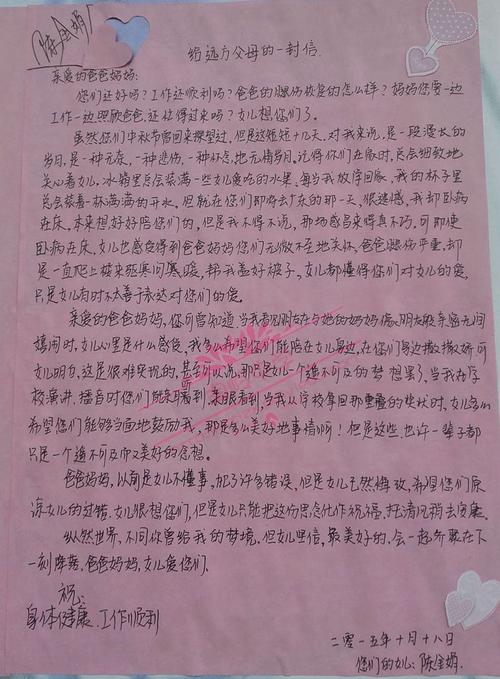 陈金娟
给远方父母的一封信.
亲爱的爸爸妈妈:
您们还好吗?工作还顺利吗?爸爸的腿伤恢复的怎么样?妈妈您要一边
工作一边照顾爸爸,还忙得过来吗?女儿想您们了。
虽然您们中秋节曾回来探望过,但是这短短十几天,对我来说,是一段漫长的
岁月,是一种无奈,一种悲伤,一种怀念,地无情岁月,记得你们在家时,总会细致地
关心着女儿.冰箱里总会装满一些女儿爱吃的水果,每当我放学回家,我的杯子里
总会装着一杯满满的开水,但就在你们即将去广东的那一天,很遗憾,我却卧病
在床。本来想好好陪您们的,但是我不得不说,那场感冒来得真不巧,可即使
卧病在床,女儿也感受得到爸爸妈妈您们无微不至地关怀,爸爸腿伤严重,却
是一直爬上楼来班寒问寒暖,帮我盖好被子,女儿都懂得您们对女儿的爱,
只是女儿有时不太善于表达对您们的爱。
亲爱的爸爸妈妈,您可曾知道,当我看见朋友在与她的妈妈像朋友般亲密无间
嬉闹时,女儿心里是什么感受,我多么希望您们能陪在女儿身边,在你们身边撒撒娇可
女儿明白,这是很难实现的,甚至可以说,那只是女儿一个遥不可及的梦想罢了,当我在学
校演讲,播音时您们能亲耳看到,亲眼看到,当我从学校拿回那重叠的奖状时,女儿多么
希望您们能够当面地鼓励我,那是多么美好地事情啊!但是这些,也许一辈子都
只是一个遥不可及而又美好的念想。
爸爸妈妈,以前是女儿不懂事,犯了许多错误,但是女儿已然悔改,希望您们原
谅女儿的过错,女儿很想您们,但是女儿只能把这份思念化作祝福,托清风稍去
纵然世界,不同你曾给我的梦境,但女儿坚信,最美好的,会一起齐聚在下
一刻降落,爸爸妈妈,女儿爱您们。
祝:
身体健康.工作顺利
二零一五年十月十八日
您们的女儿:陈金娟.